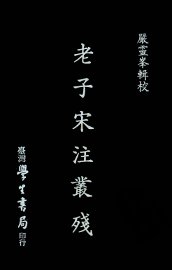 嚴靈峯輯校
老子宋注叢殘
臺灣學生書局印行